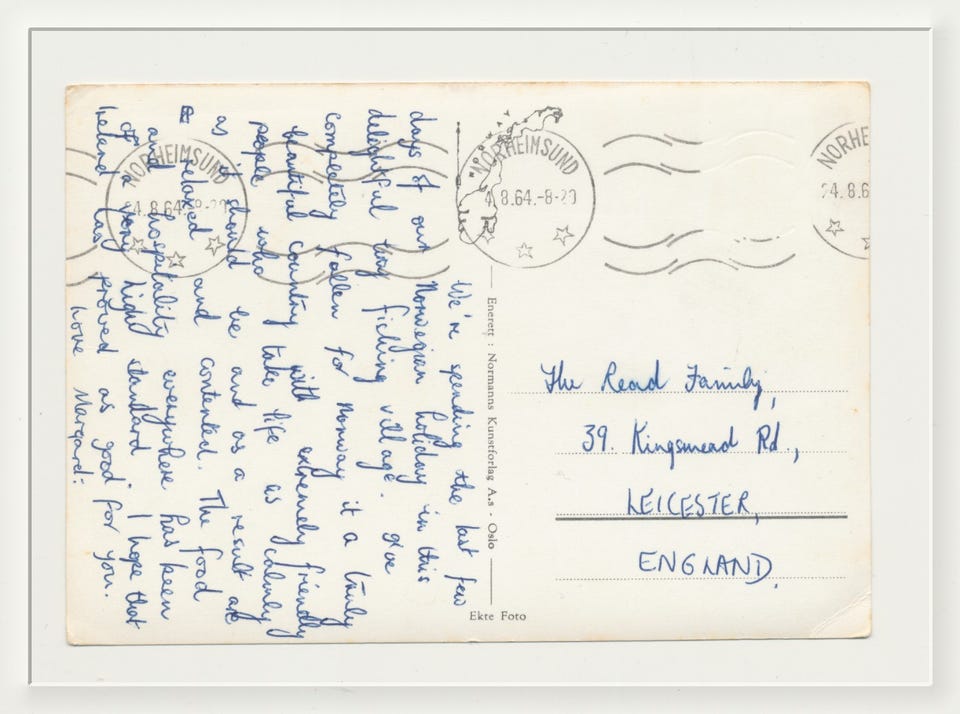 We're spending the last few
days of our Norwegian holiday in this
delightful tiny fishing village.
completely fallen for Norway it a truly
beautiful country with extremely friendly
people who take life as calmly
as it should be and as a result are
relaxed and contented. The food
and hospitality everywhere has been
of a very high standard. I hope that
Ireland has proved as good for you.
Love Margaret.
NORHEIMSUND
24.8.64.-8-20
NORHEIMSUND
4.8.64.-8-20
NORHE
24.8.6
Enerett : Normanns Kunstforlag A.s - Oslo
Ekte Foto
The Read Family,
39. Kingsmead Rd.,
LEICESTER,
ENGLAND.